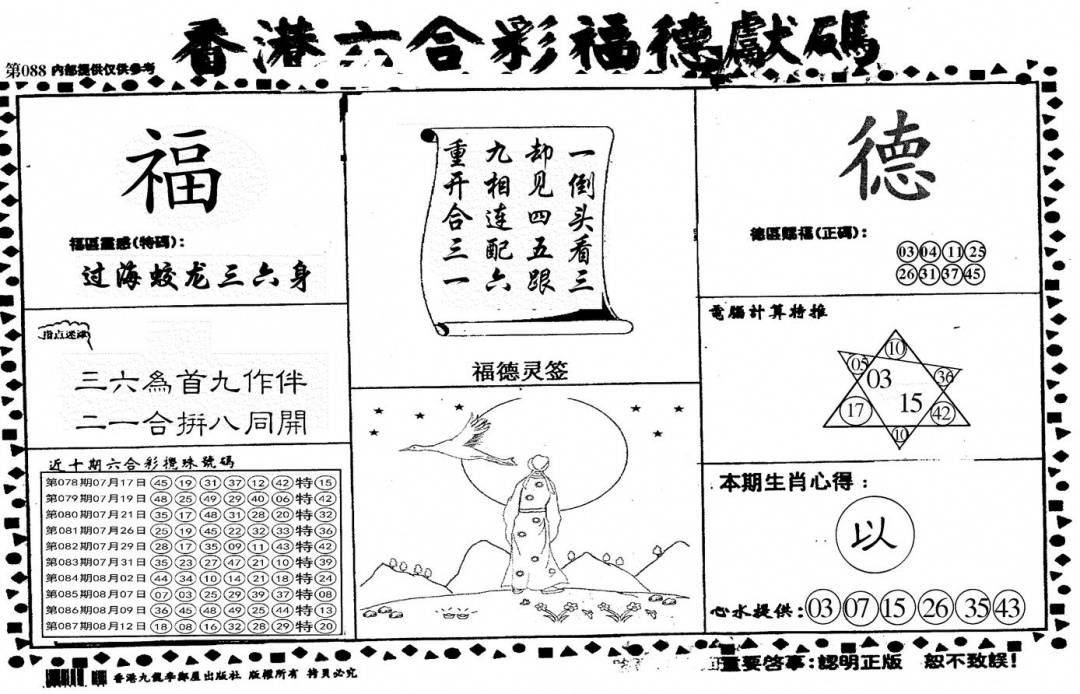 香港六合彩福德獻碼
第088 内部提供仅供参考
福
福區靈感(特碼):
过海蛟龙三六身
指点迷津
三六為首九作伴
二一合拼八同開
近十期六合彩攪珠號碼
第078期07月17日 45 19 31 37 12 42 特 15
第079期07月19日 48 25 49 29 40 06 特 42
第080期07月21日 35 17 48 31 28 20 特 32
第081期07月26日 25 19 45 22 32 33 特 36
第082期07月29日 28 17 35 09 11 43 特 42
第083期07月31日 35 23 27 47 21 10 特 39
第084期08月02日 44 34 10 14 21 18 特 24
第085期08月07日 07 03 25 29 39 37 特 08
第086期08月09日 36 45 48 49 25 44 特 13
第087期08月12日 18 08 16 32 28 29 特 20
一倒头看三
却见四五跟
九相连配六
重开合三一
福德灵签
德
德區賜福(正碼):
03 04 11 25
26 31 37 45
電腦計算特推
10
05 03 36
17 15 42
10
本期生肖心得:
以
心水提供: 03 07 15 26 35 43
香港九龍李鄭屋出版社 版權所有 拷貝必究
重要启事:認明正版 恕不致誤!